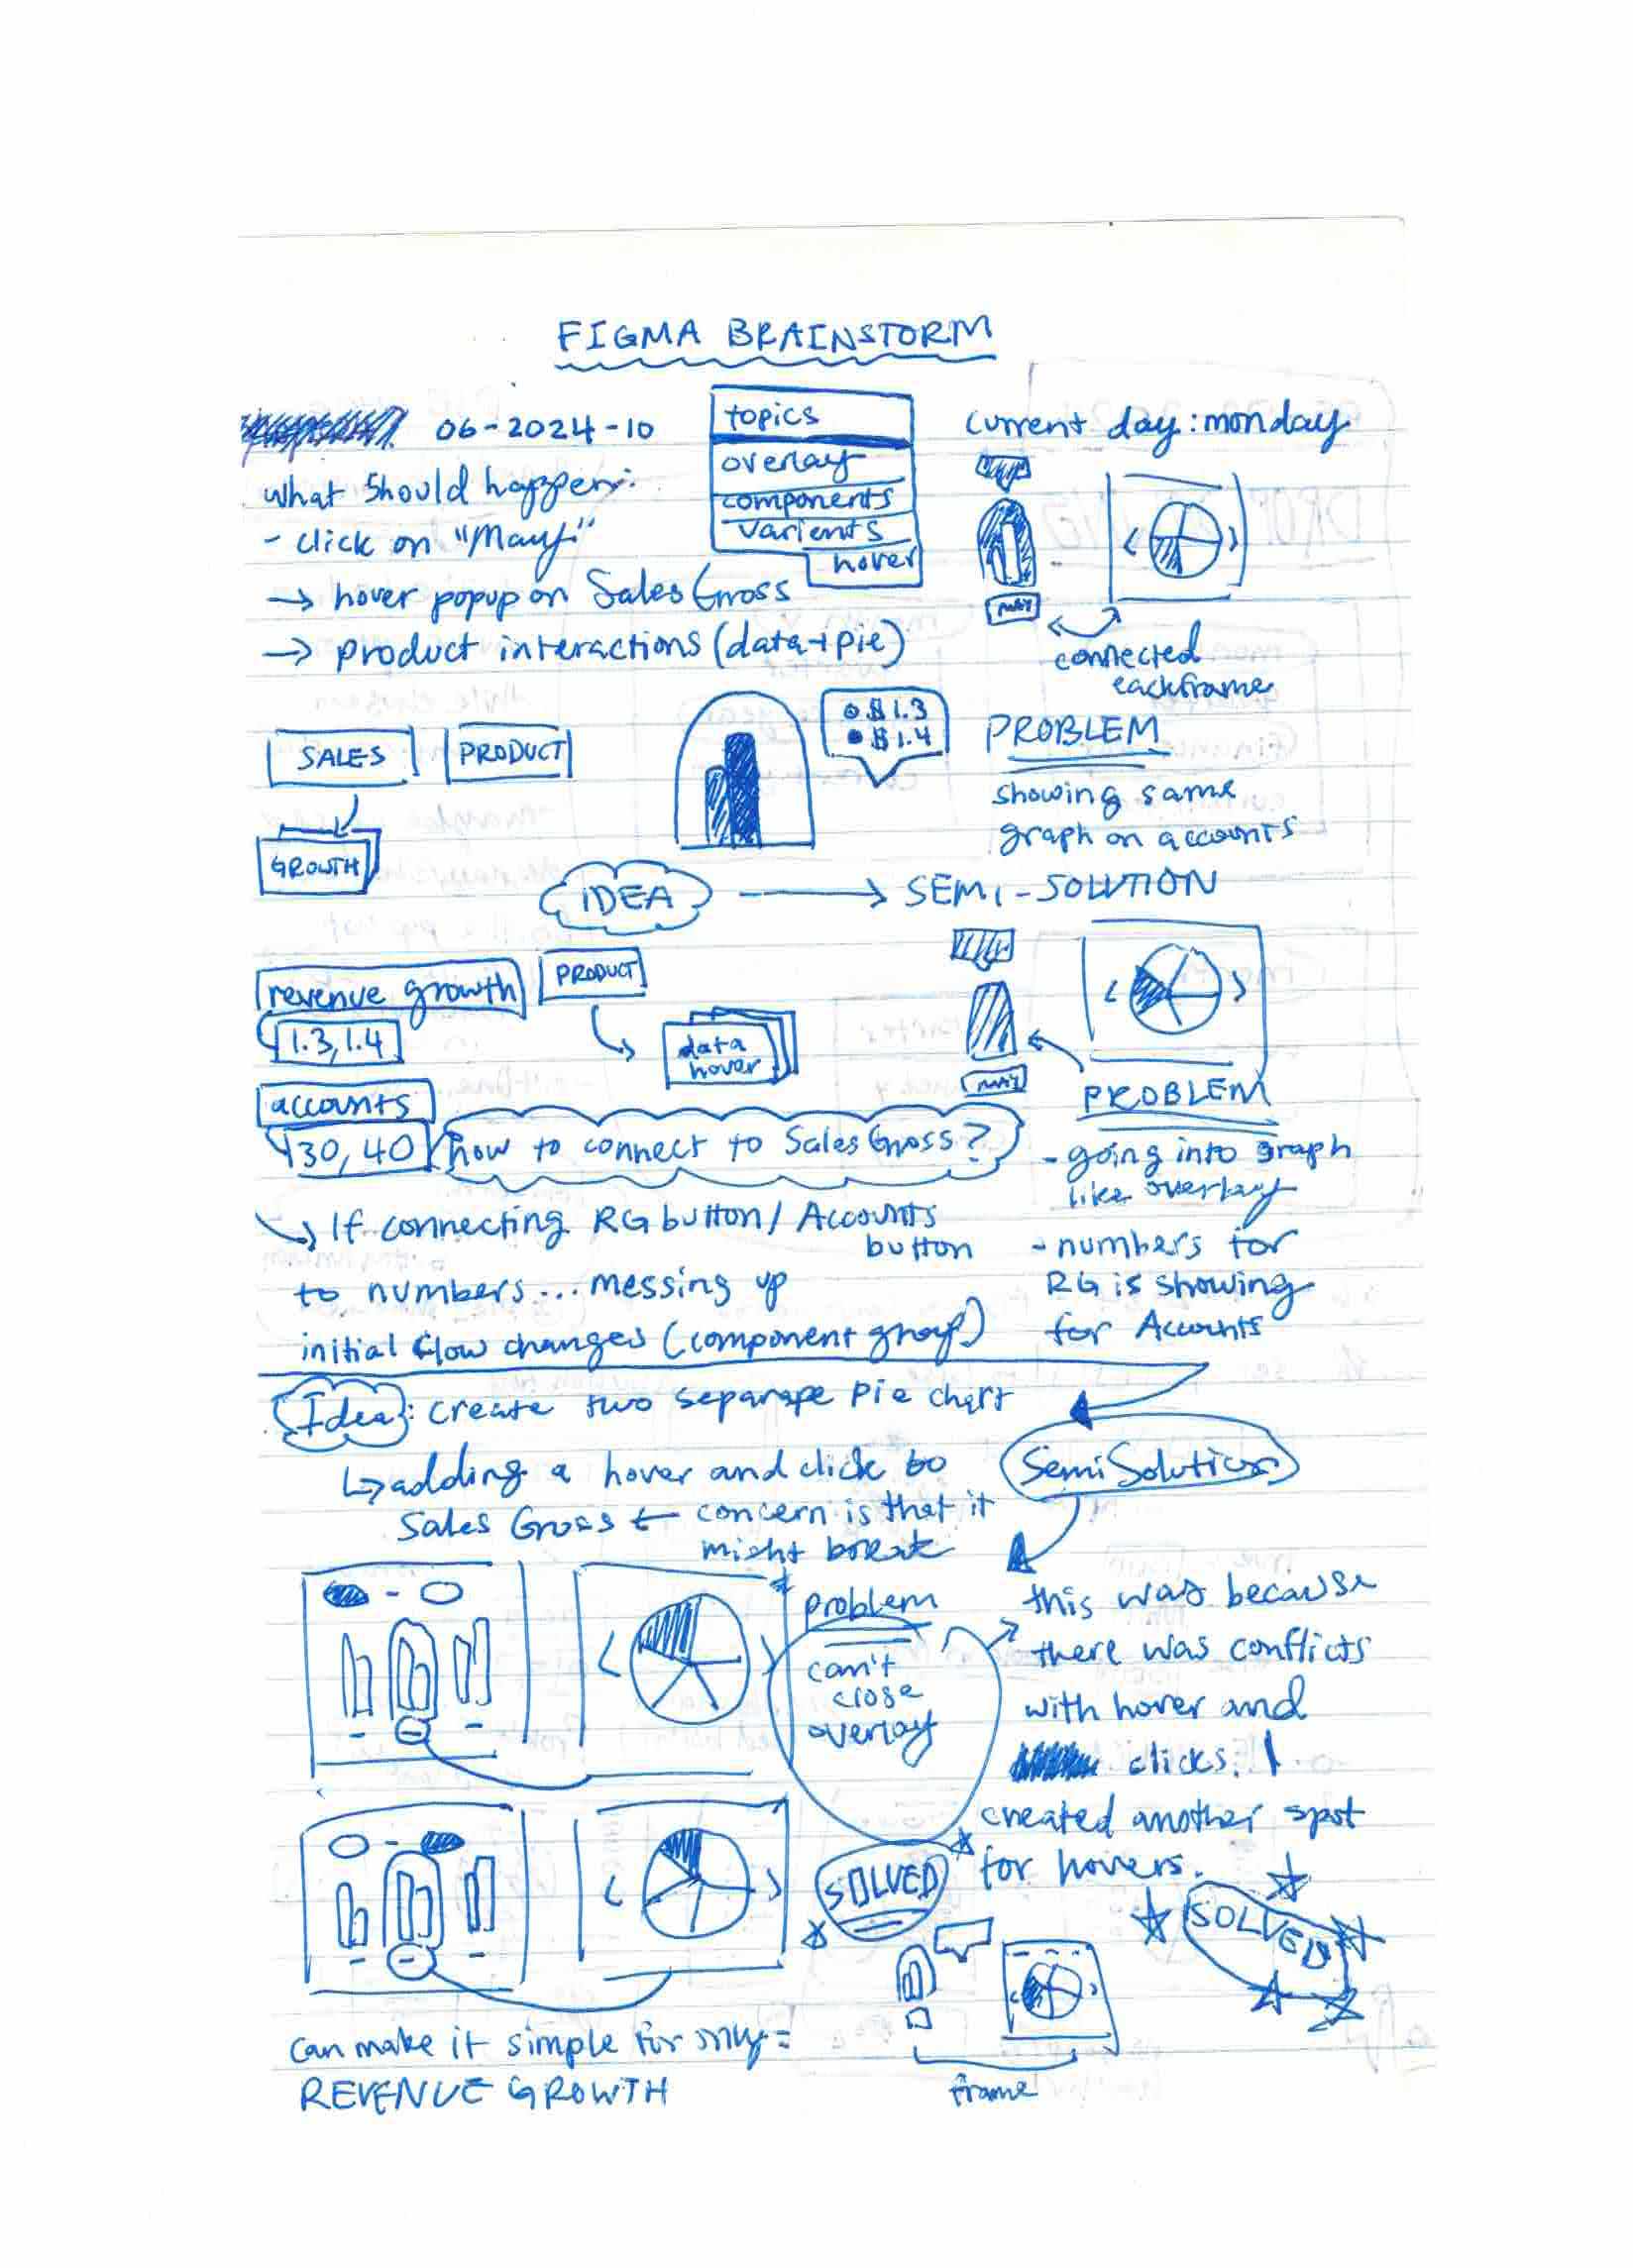 FIGMA BRAINSTORM
06-2024-10
topics
overlay
components
varients
hover
current day: monday
what should happen:
- click on "May"
→ hover popup on Sales Gross
→ product interactions (data+pie)
may
connected
each frame
SALES
PRODUCT
GROWTH
$1.3
$1.4
PROBLEM
showing same
graph on accounts
IDEA → SEMI-SOLUTION
revenue growth
1.3, 1.4
PRODUCT
data
hover
may
accounts
30, 40
how to connect to Sales Gross?
PROBLEM
- going into graph
like overlay
- numbers for
RG is showing
for Accounts
If connecting RG button / Accounts
button
to numbers... messing up
initial flow changes (component group)
Idea: create two separape pie chart
↳ adding a hover and click to
Sales Gross ← concern is that it
might break
Semi Solution
problem
can't
close
overlay
this was because
there was conflicts
with hover and
clicks. I
created another spot
for hovers.
SOLVED
SOLVED
can make it simple for only =
REVENUE GROWTH
frame